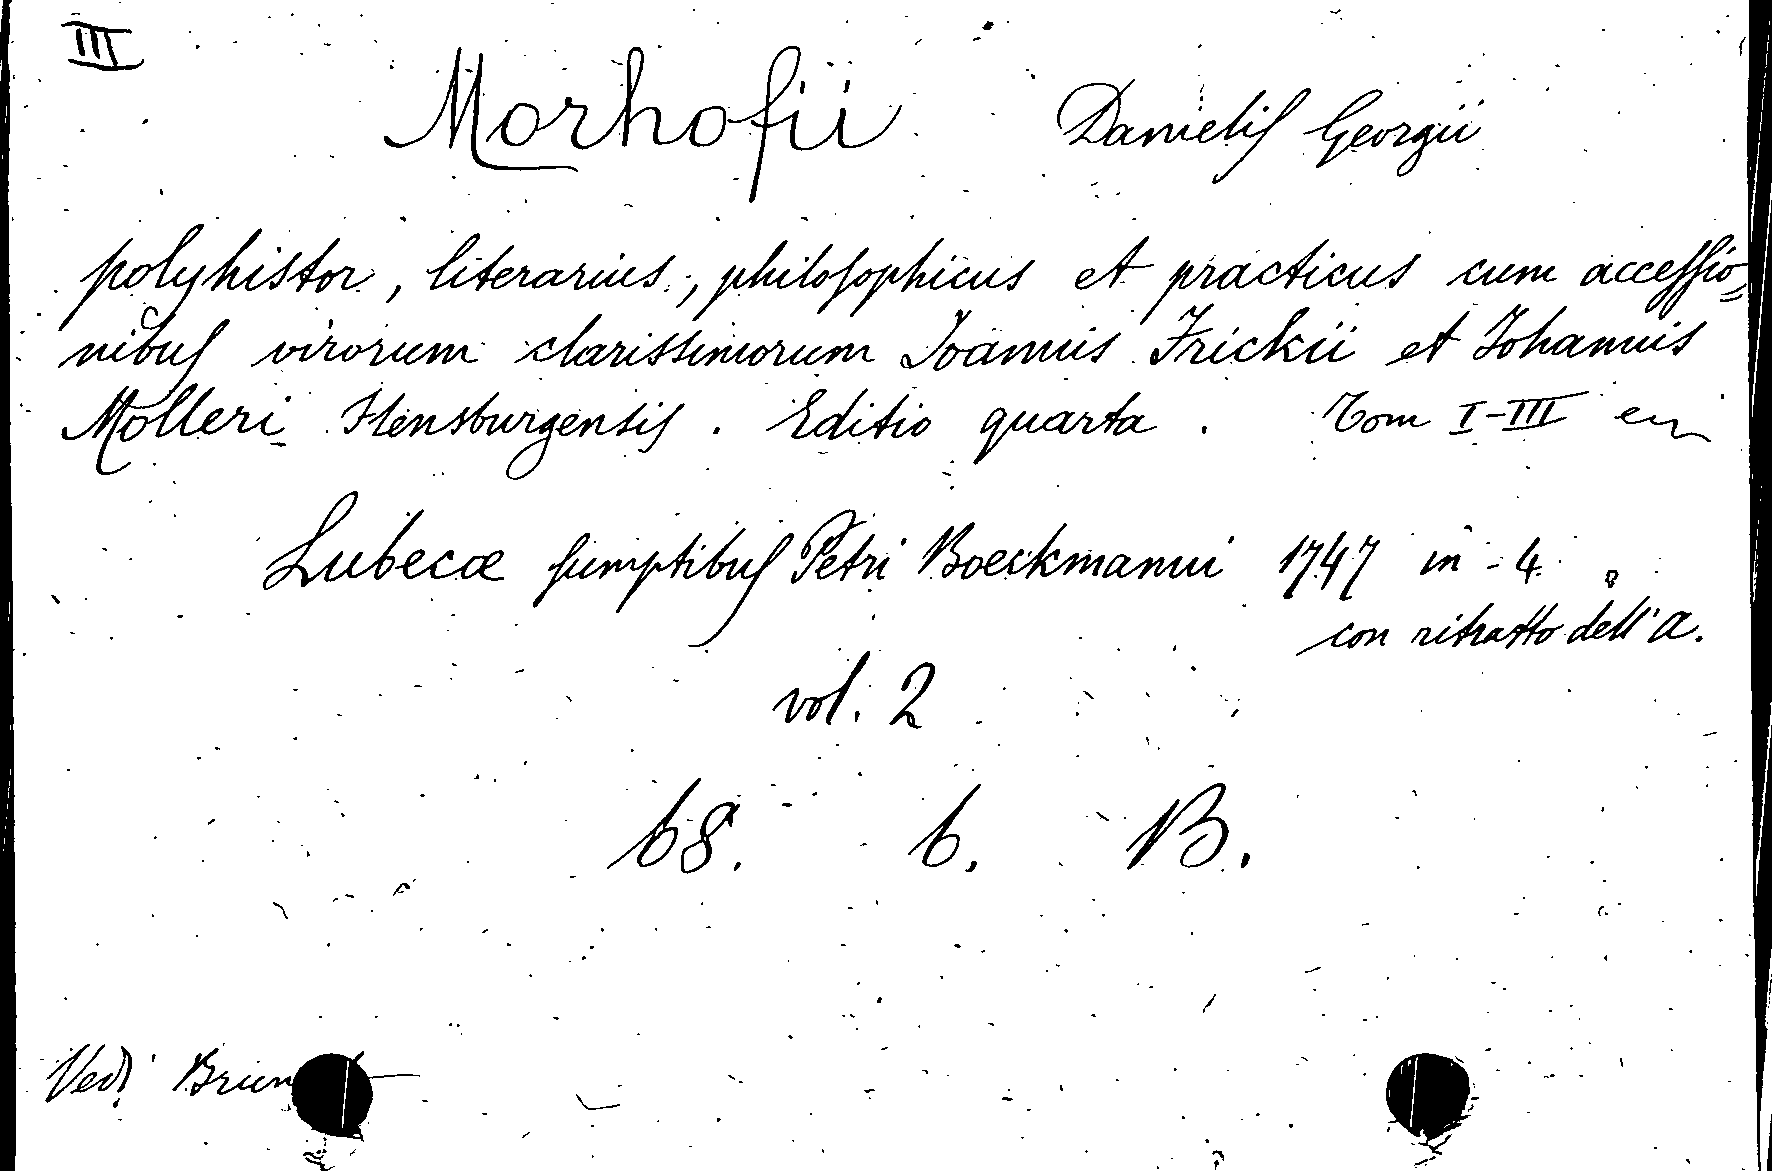 III
Morhofii Danielis Georgii
polyhistor, literarius, philosophicus et practicus cum accessio=
nibus virorum clarissimorum Ioannis Frickii et Johannis
Molleri Flensburgensis. Editio quarta. Tom I-III en
Lubecæ sumptibus Petri Boeckmanni 1747 in-4°
con ritratto dell'A.
vol. 2
68. 6. B.
Vedi